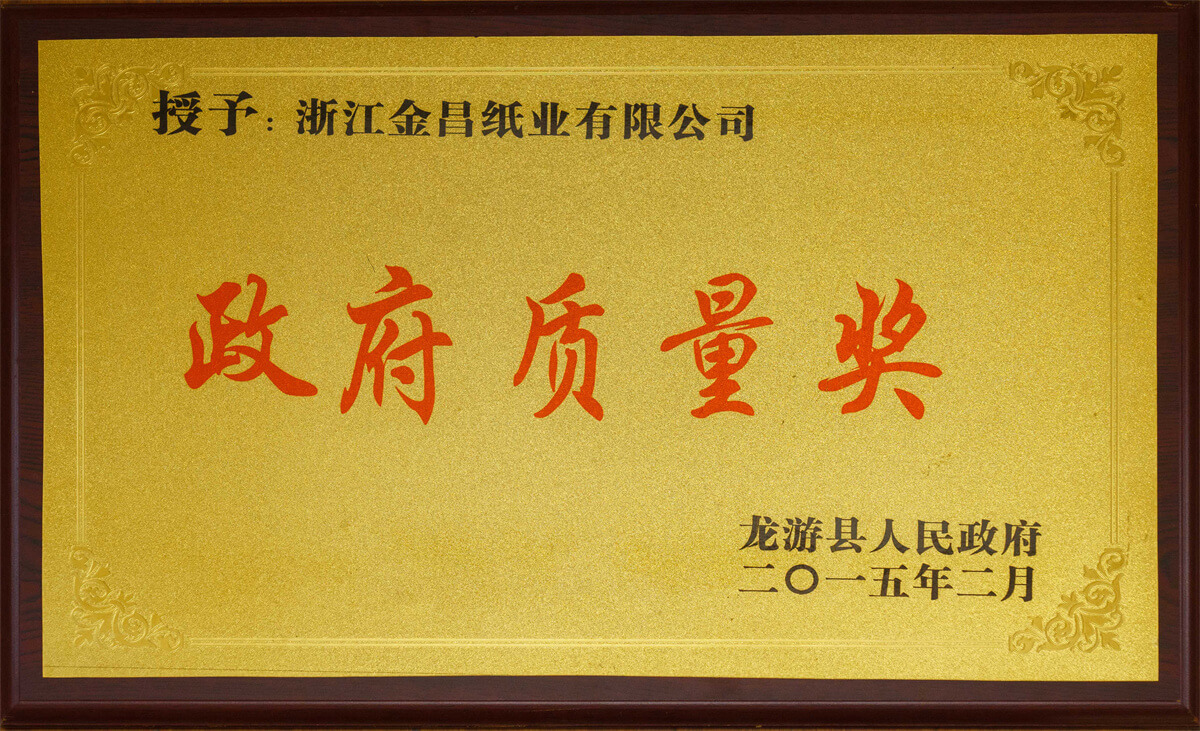 授予：浙江金昌纸业有限公司
政府质量奖
龙游县人民政府
二〇一五年二月